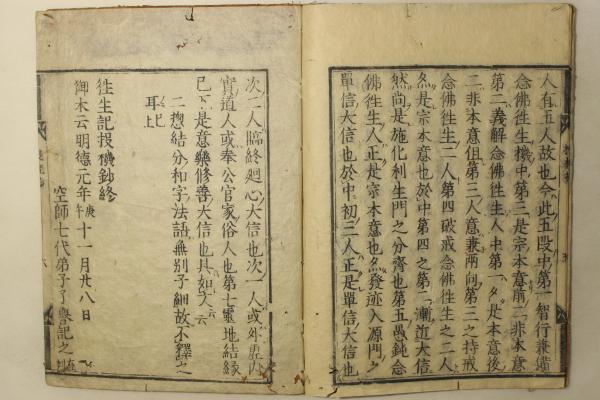 人有五人故也今此五段中第一智行兼備
念佛徃生機中第三是宗本意前二非本意
第二義解念佛徃生人中第一是本意後
二非本意但第三人意兼兩向第三之持戒
念佛徃生二人第四破戒念佛徃生之二人
是宗本意也於中第四之第二漸近大信
然尚是施化利生門之分齊也第五愚鈍念
佛徃生人正是宗本意也發迹入源門之
單信大信也於中初三人正是單信大信也
次二人臨終廻心大信也次一人或外雲内
實道人或奉公官家俗人也第七靈地結縁
已下是意樂修善大信也具如文云
二惣結分和字法語無別子細故不釋之
耳上已
徃生記投機鈔終
御本云明德元年庚午十一月廿八日
空師七代弟子了譽記之